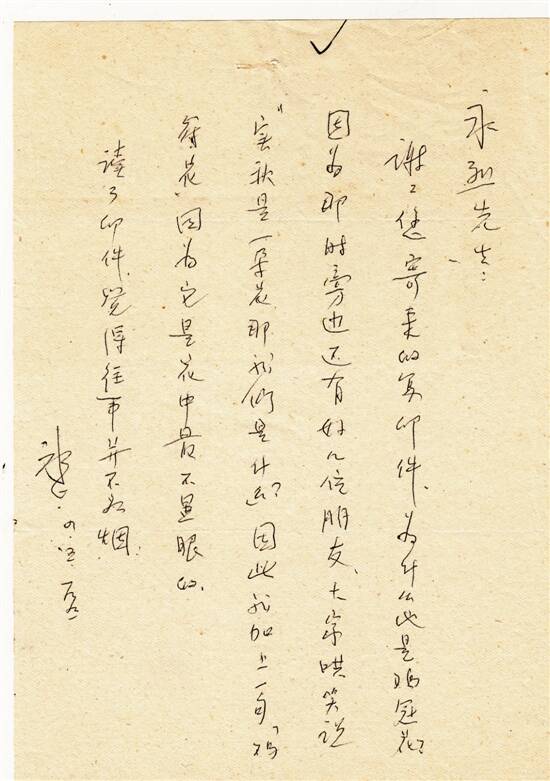 永烈先生：
谢谢您寄来的复印件，为什么此是鸡冠花？
因为那时旁边还有好几位朋友，大家哄笑说
“实秋是一朵花，那我们是什么？”因此我加上一句，“鸡
冠花”，因为它是花中最不显眼的。
读了印件，觉得往事并不如烟。